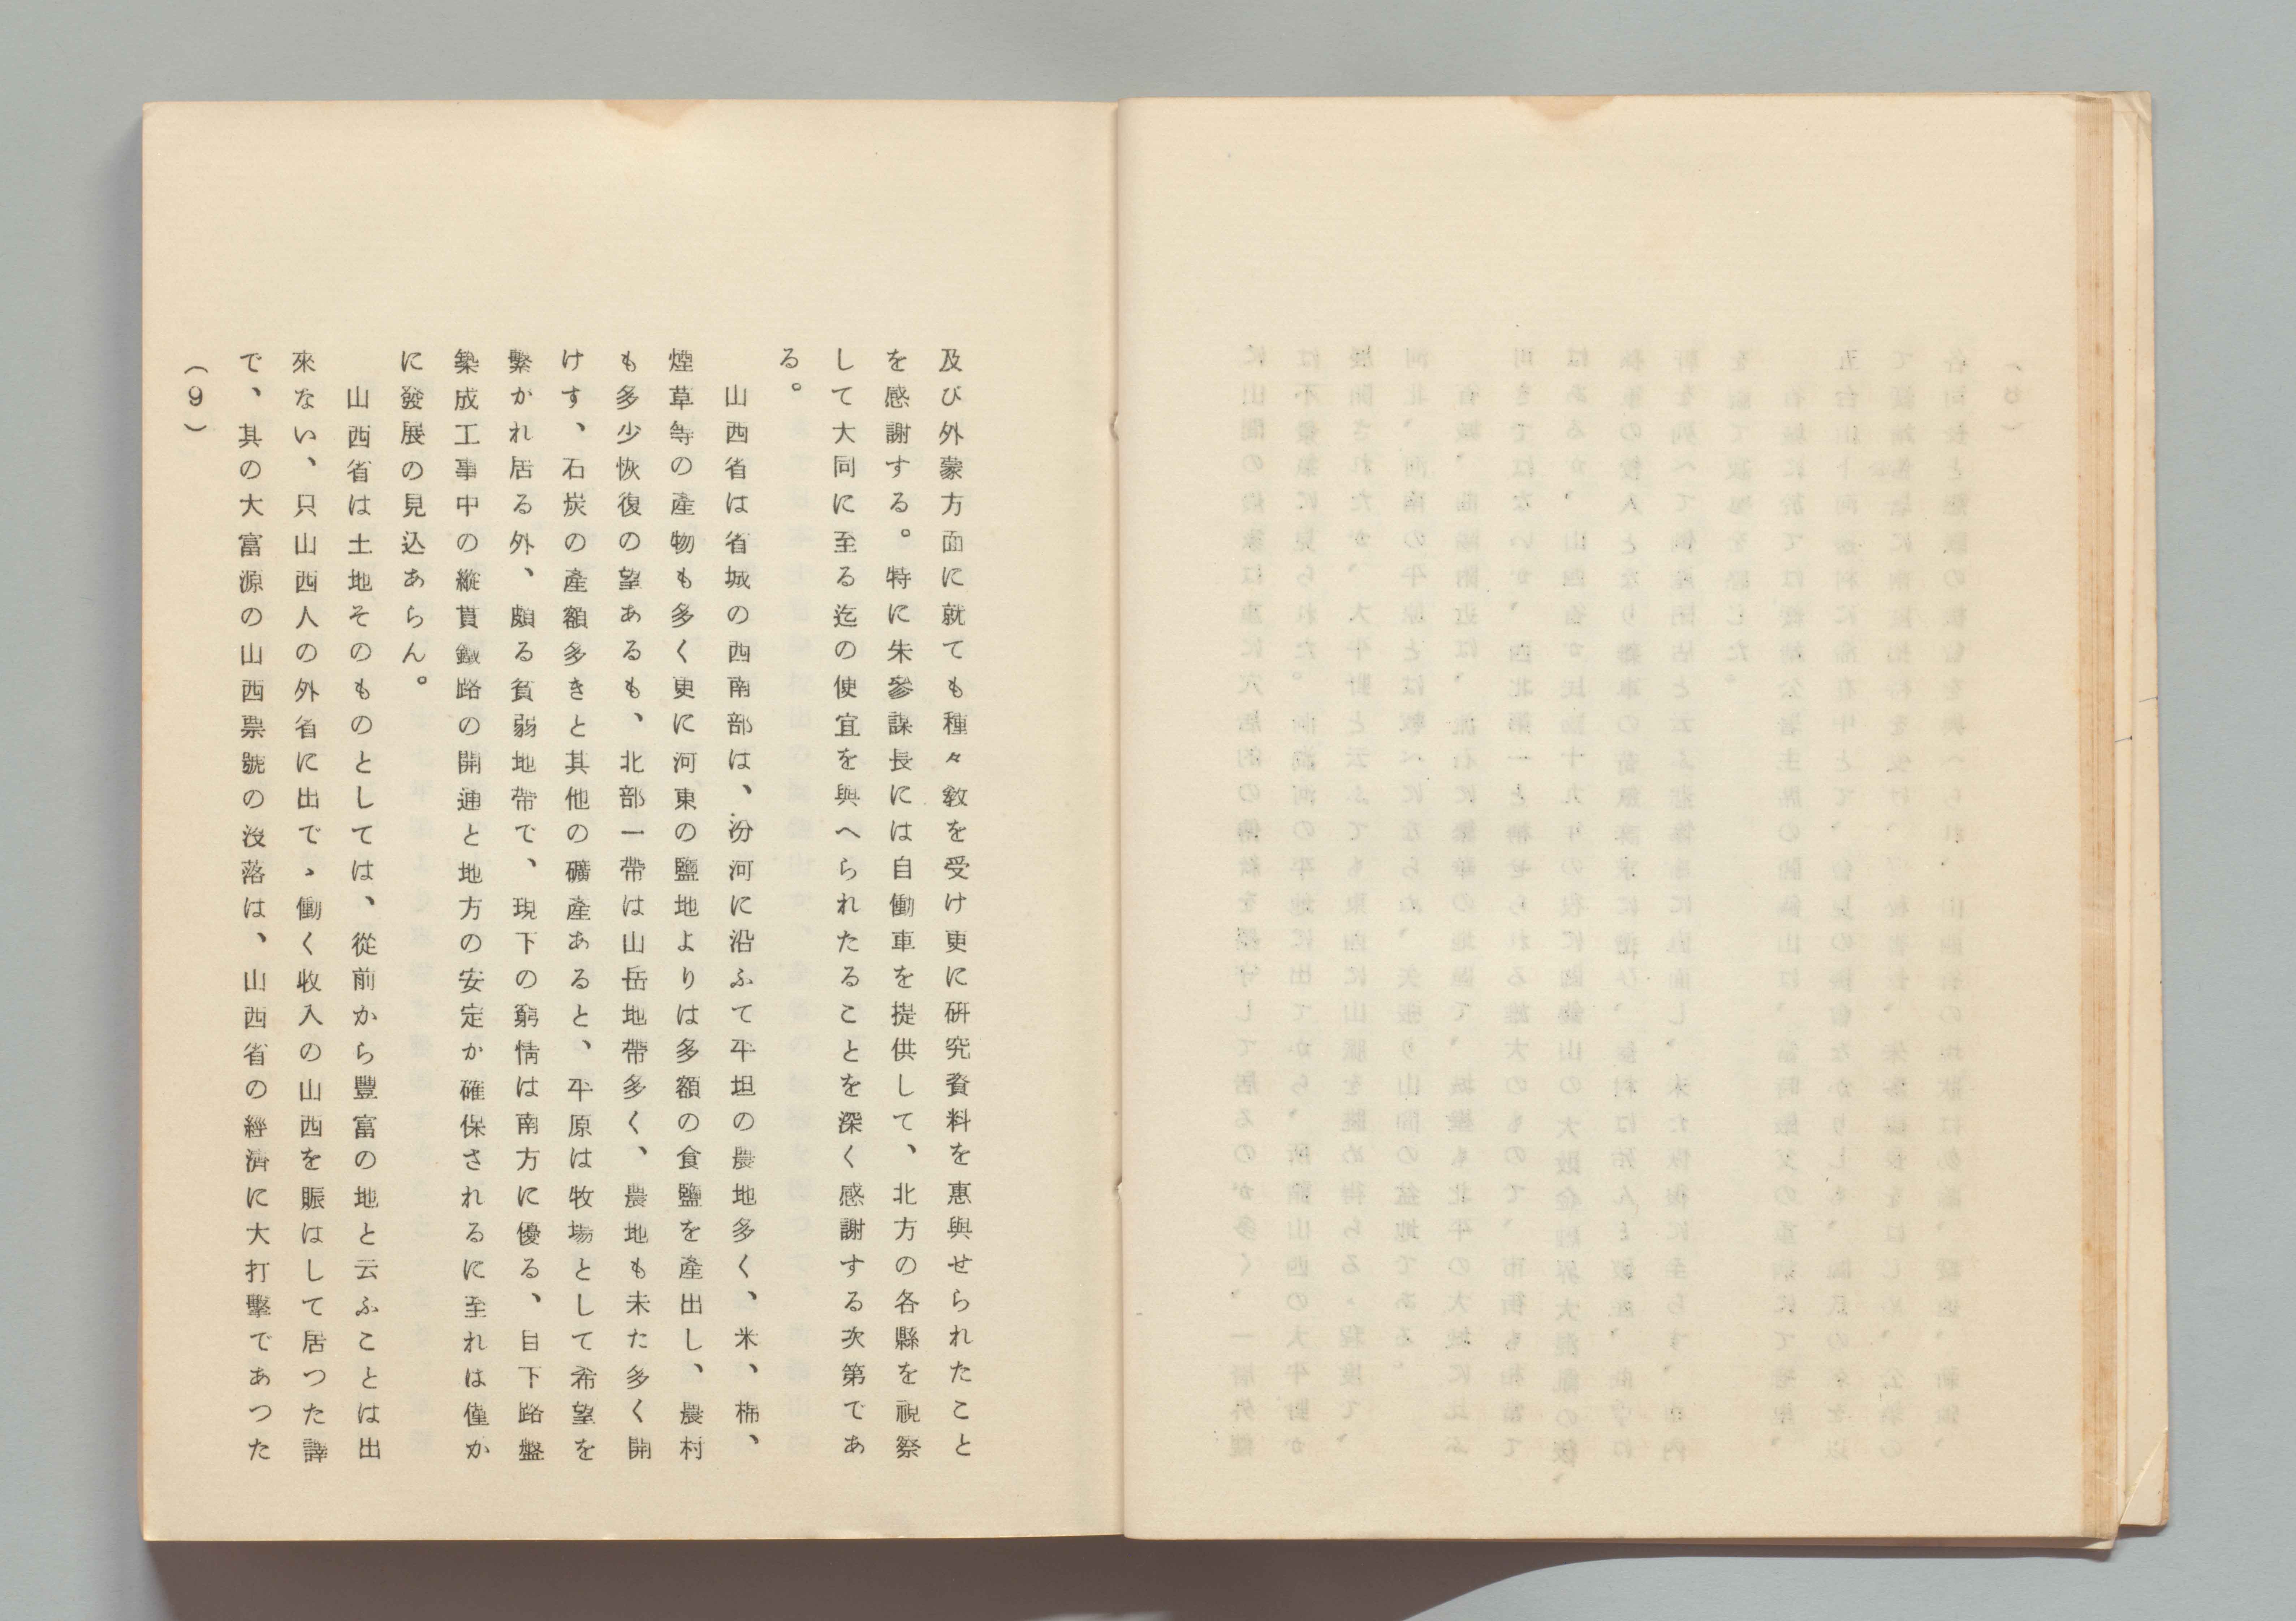 及び外蒙方面に就ても種々敎を受け更に硏究資料を惠與せられたこと
を感謝する。特に朱參謀長には自働車を提供して、北方の各縣を視察
して大同に至る迄の便宜を與へられたることを深く感謝する次第であ
る。
山西省は省城の西南部は、汾河に沿ふて平坦の農地多く、米、棉、
煙草等の產物も多く更に河東の鹽地よりは多額の食鹽を產出し、農村
も多少恢復の望あるも、北部一帶は山岳地帶多く、農地も未た多く開
けす、石炭の產額多きと其他の礦產あると、平原は牧場として希望を
繫かれ居る外、頗る貧弱地帶で、現下の窮情は南方に優る、目下路盤
築成工事中の縱貫鐵路の開通と地方の安定か確保されるに至れは僅か
に發展の見込あらん。
山西省は土地そのものとしては、從前から豐富の地と云ふことは出
來ない、只山西人の外省に出で、働く收入の山西を賑はして居つた譯
で、其の大富源の山西票號の沒落は、山西省の經濟に大打擊であつた
（9）